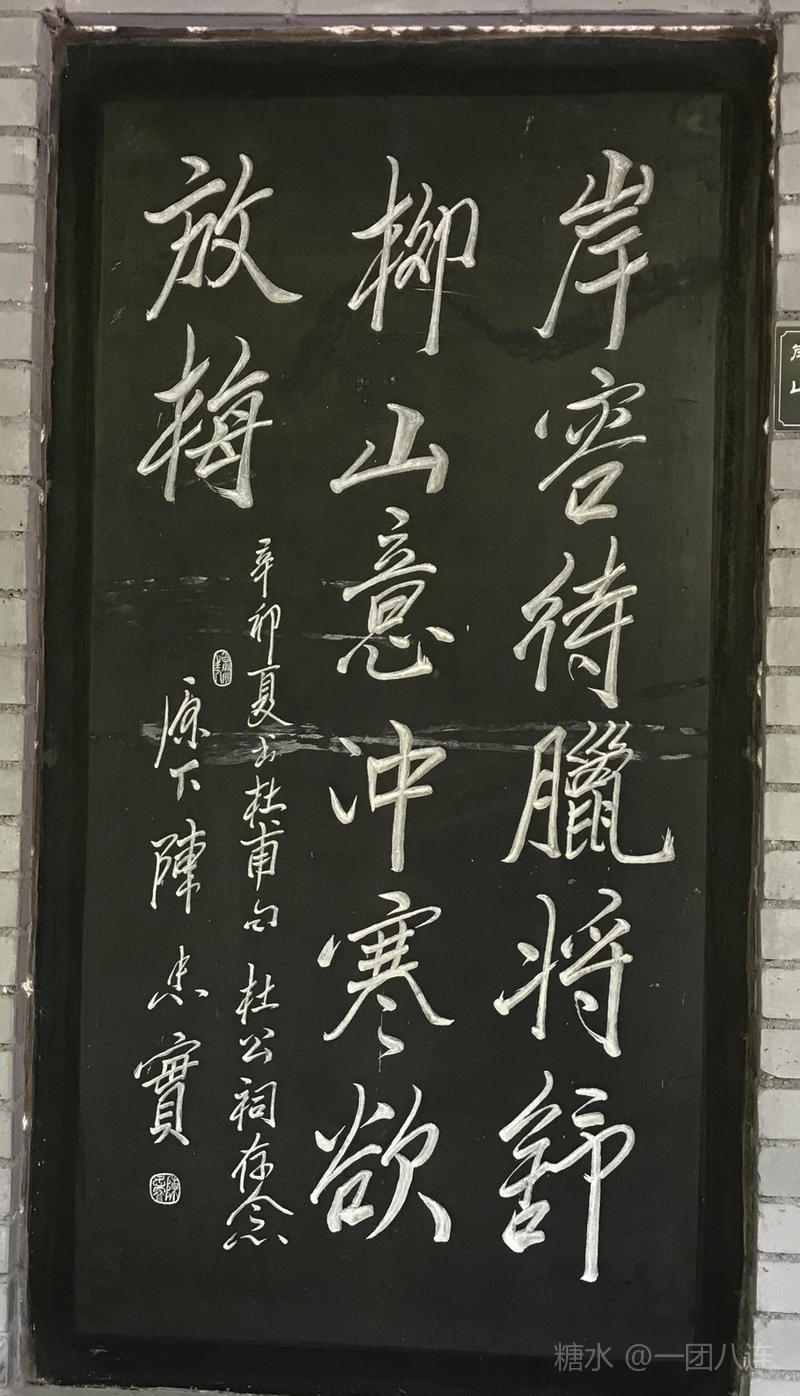 岸容待臘将舒
柳山意冲寒欲
放梅
辛卯夏书杜甫句 杜公祠存念
原下陳忠實
糖水 @一团八连